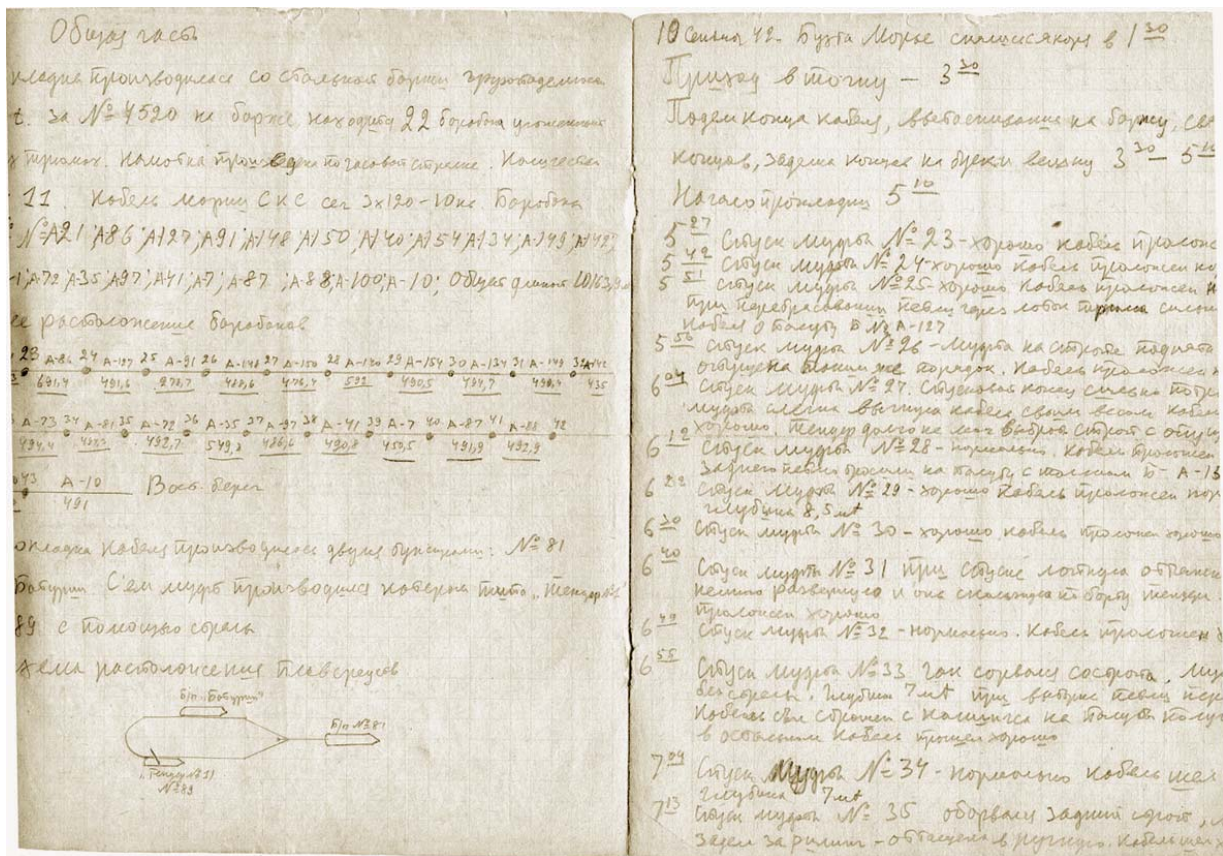 Общая часть
кладка производилась со стальной баржи грузоподъемн
t. за № 4520 на барже находится 22 барабана уложенных
х трюмах. Намотка произведена по часовой стрелке. Количество
11. Кабель марки СКС сеч 3х120-10кв. Барабана
№ А21; А86; А127; А91; А148; А150; А140; А154; А134; А-149; А142;
А-72; А-35; А97; А-41; А-7; А-87; А-88; А-100; А-10; Общая длинна 10163,9 м
ое расположение барабанов
23 А-86 24 А-127 25 А-91 26 А-148 27 А-150 28 А-140 29 А-154 30 А-134 31 А-149 32 А-142
691,4 491,6 278,7 488,6 476,4 592 490,5 494,7 490,4 435
А-73 34 А-81 35 А-72 36 А-35 37 А-97 38 А-41 39 А-7 40 А-87 41 А-88 42
494,4 492,7 549,2 486,6 490,8 459,5 491,9 492,9
43 А-10 Вост. берег
491
окладка кабеля производилась двумя буксирами: № 81
Батурин С'ем муфт производился катером типа „Тендер"
89 с помощью стрелы
хема расположения плавсредств
б/п „Батурин"
б/п № 81
„Тендер"
№ 89
10 Сентяб 42. Бухта Морье снялись с якоря в 1 30
Приход в точку - 3 30
Подъем конца кабеля, вытаскивание на баржу, све
концов, заделка концов на буски вельну 3 30 - 5 10
Начало прокладки 5 10
5 27 Спуск муфты № 23 - хорошо кабель проложе
5 42 Спуск муфты № 24 - хорошо кабель проложен но
5 51 Спуск муфты № 25 - хорошо. Кабель проложен н
при перебрасывании петли через лоток трюма сильно
кабеля о палубу Б № А-127
5 56 Спуск муфты № 26 - Муфта на стропе поднята
опущена таким же порядок. Кабель проложен н
6 04 Спуск муфты № 27. Спусковой конец сильно потр
муфты слегка выгнула кабель своим весом кабель
хорошо. Тендер долго не мог выброс строп с опущ
6 12 Спуск муфты № 28 - нормально. Кабель проложен
заднего петлю бросили на палубу с толчком Б- А-15
6 22 Спуск муфты № 29 - хорошо кабель проложен нор
глубина 8,5 mt
6 30 Спуск муфты № 30 - хорошо кабель проложен хорошо
6 40 Спуск муфты № 31 при спуске лопнула оттяжк
немного развернуло и она скользнула по борту тендера
проложен хорошо
6 49 Спуск муфты № 32 - нормально. Кабель проложен
6 55 Спуск муфты № 33 гак сорвался со стропа. Му
без стрелы. Глубина 7 mt при выпуске петли пер
Кабель был сброшен с комингса на палубу
в остальном кабель прошел хорошо
7 04 Спуск Муфты № 34 - нормально кабель шел
глубина 7 mt
7 13 Спуск муфты № 35 оборвали задний строп,
задел за рилинг - оттащена в ручную. Кабель шел